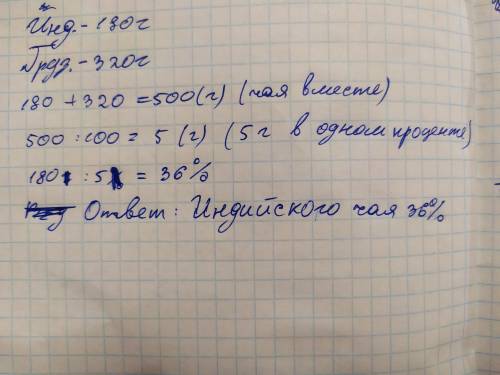 Инд. - 180г
Груз. - 320г
180 + 320 = 500 (г) (чая вместе)
500 : 100 = 5 (г) (5 г в одном проценте)
180 : 5 = 36%
Ответ: Индийского чая 36%